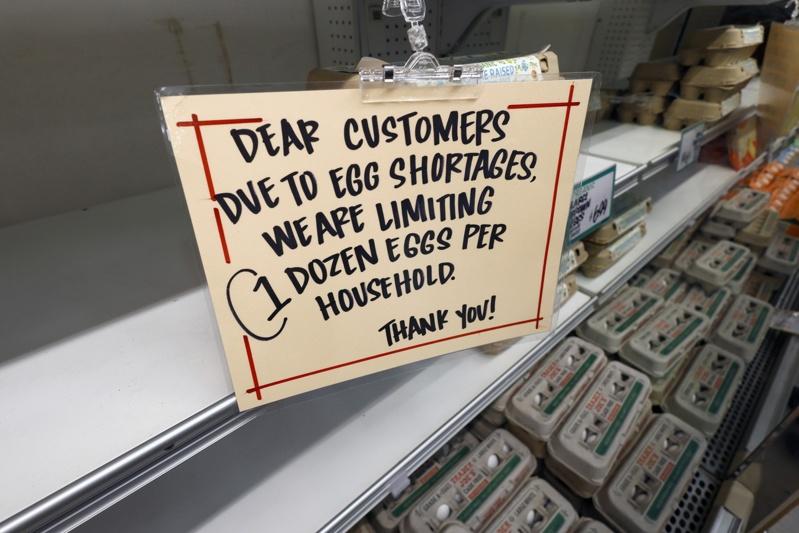 DEAR CUSTOMERS
DUE TO EGG SHORTAGES,
WE ARE LIMITING
1 DOZEN EGGS PER
HOUSEHOLD.
THANK YOU!
RAISED
6.49